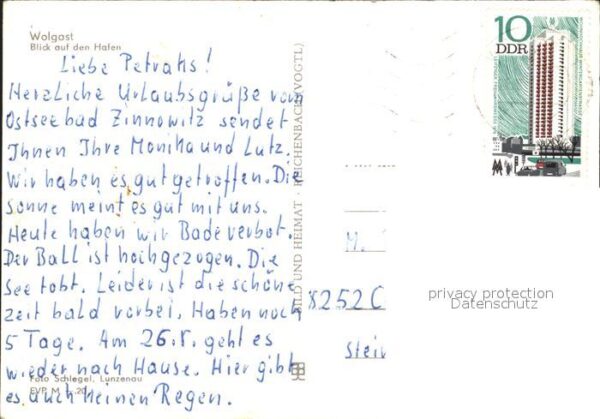 Wolgast
Blick auf den Hafen
Liebe Petrahs!
Herzliche Urlaubsgrüße vom
Ostseebad Zinnowitz sendet
Ihnen Ihre Monika und Lutz.
Wir haben es gut getroffen. Die
Sonne meint es gut mit uns.
Heute haben wir Badeverbot.
Der Ball ist hochgezogen. Die
See tobt. Leider ist die schöne
Zeit bald vorbei. Haben noch
5 Tage. Am 26.8. geht es
wieder nach Hause. Hier gibt
es auch keinen Regen.
Foto Schlegel, Lunzenau
EVP M
BILD UND HEIMAT REICHENBACH (VOGTL)
10
DDR
M.
8252 C
Stein
privacy protection
Datenschutz